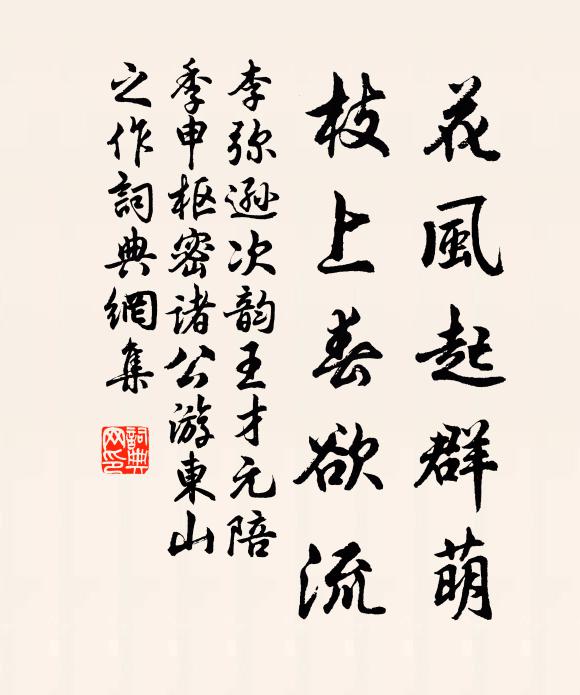 花風起群萌
枝上春欲流
李弥遜次韵王才元陪
季申枢密諸公游東山
之作詞典網集
詞典
网印